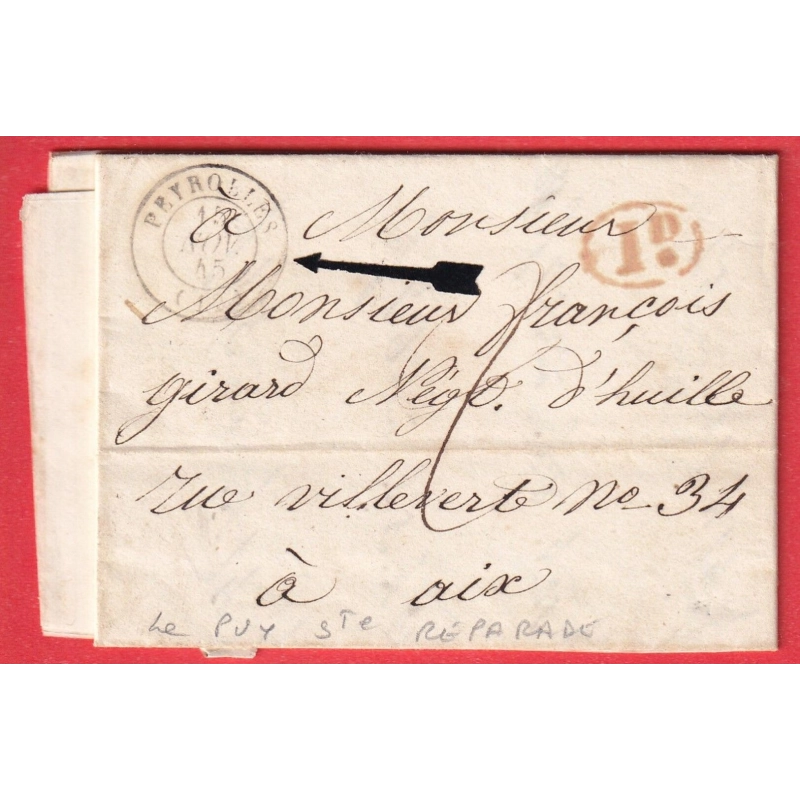 PEYROLLES
15
45
1D.
a Monsieur
Monsieur françois
girard Négt. d'huille
rue villeverte no 34
à aix
Le PUY Ste REPARADE